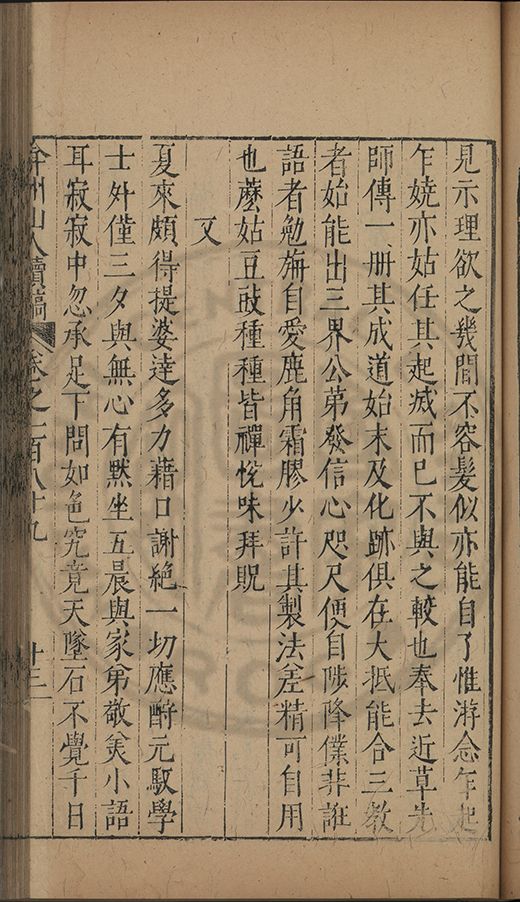 見示理欲之幾間不容髮似亦能自了惟游念乍起
乍嬈亦姑任其起滅而已不與之較也奉去近草先
師傳一册其成道始末及化跡俱在大抵能合三教
者始能出三界公苐發信心咫尺便自陟降僕非誑
語者勉旃自愛鹿角霜膠少許其製法差精可自用
也蘑姑豆豉種種皆禪悅味拜貺
又
夏來頗得提婆達多力藉口謝絶一切應酧元馭學
士外僅三夕與無心有黙坐五晨與家弟敬美小語
耳寂寂中忽承足下問如色究竟天墜石不覺千日
弇州山人續稿 卷之一百八十九 十三